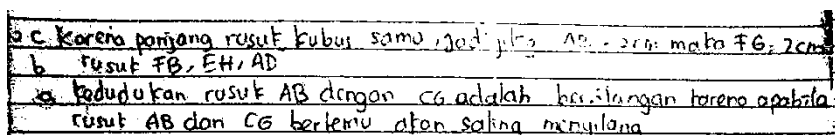 c. Karena panjang rusuk kubus sama, jadi jika AB = 2cm maka FG = 2cm
b rusuk FB, EH, AD
a kedudukan rusuk AB dengan CG adalah bersilangan karena apabila
rusuk AB dan CG bertemu akan saling menyilang